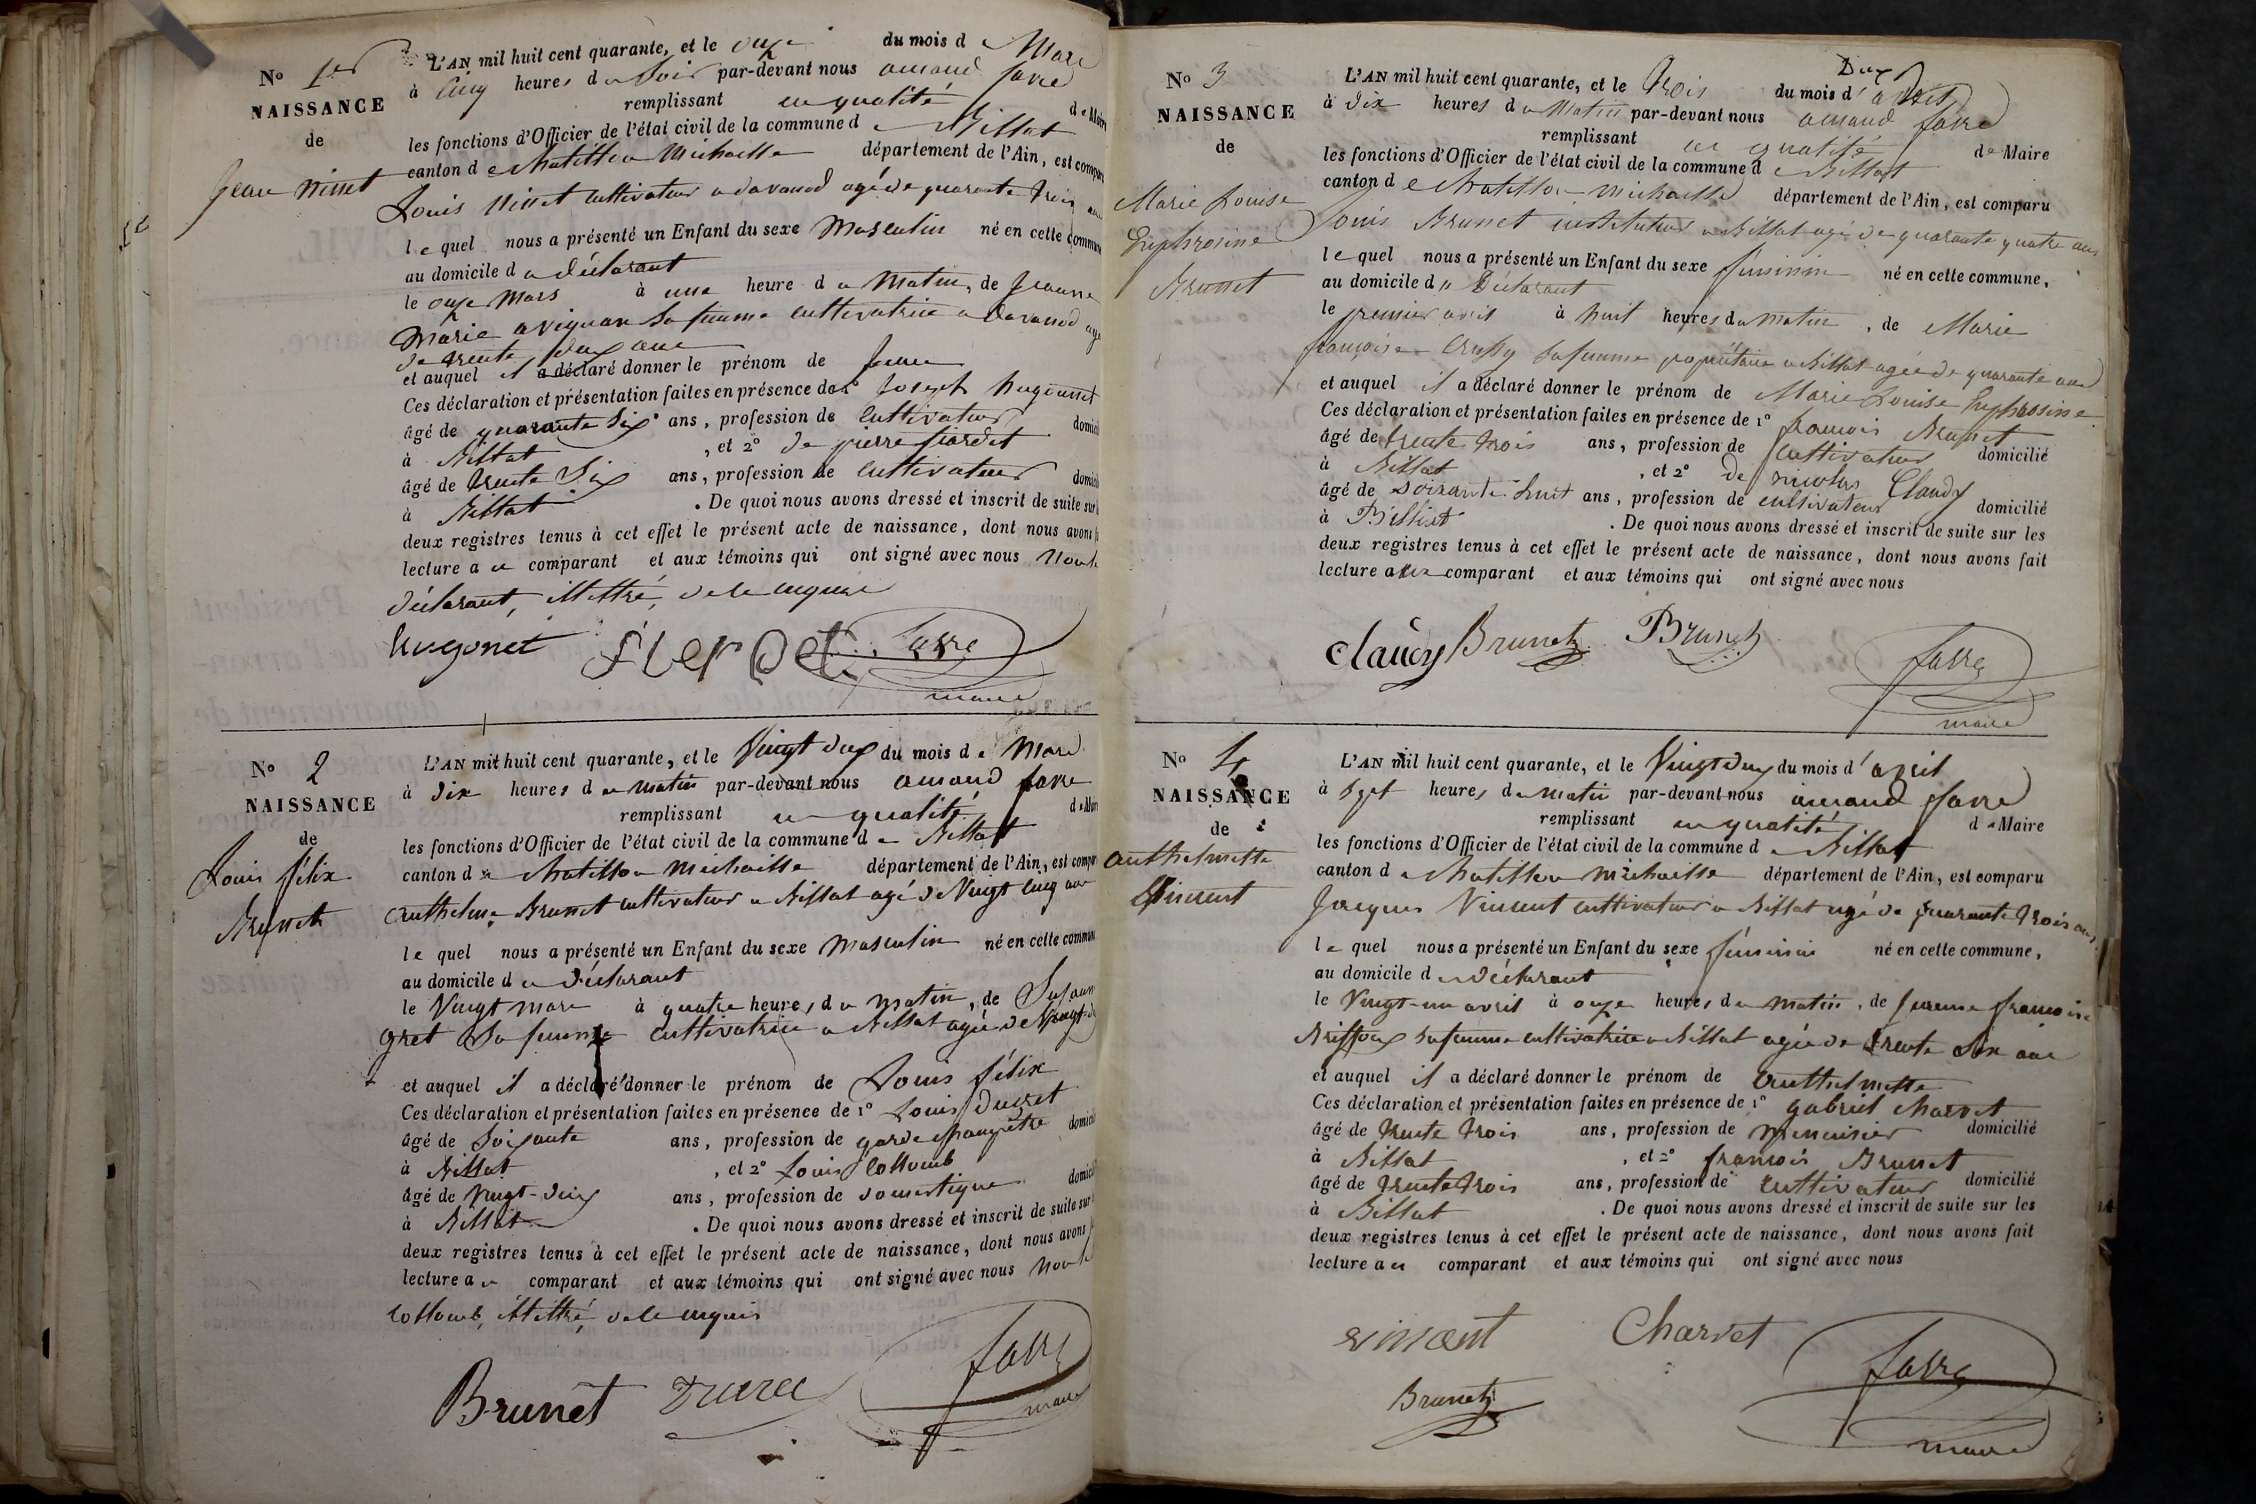 No 1er
NAISSANCE
de
Jean Ninet
L'AN mil huit cent quarante, et le onze du mois de Mars
à cinq heures du soir par-devant nous amand favre
remplissant en qualité de Maire
les fonctions d'Officier de l'état civil de la commune de Billiat
canton de Chatillon Michaille département de l'Ain, est compar
Louis Ninet cultivateur a davanod agé de quarante trois ans
lequel nous a présenté un Enfant du sexe Masculin né en cette commune
au domicile du déclarant
le onze Mars à une heure du Matin, de Jeanne
Marie avignon sa femme cultivatrice a davanod agé
de trente deux ans
et auquel il a déclaré donner le prénom de Jean
Ces déclaration et présentation faites en présence de 1° Joseph hugonnet
âgé de quarante six ans, profession de Cultivateur domici
à Billiat, et 2° de pierre fierdet
âgé de trente Six ans, profession de Cultivateur domici
à Billiat. De quoi nous avons dressé et inscrit de suite sur l
deux registres tenus à cet effet le présent acte de naissance, dont nous avons f
lecture au comparant et aux témoins qui ont signé avec nous Non le
déclarant, illettré, de ce enquis
hugonet fierdet favre
maire
No 2
NAISSANCE
de
Louis félix
Brunet
L'AN mil huit cent quarante, et le Vingt deux du mois de Mars
à dix heures du matin par-devant nous amand favre
remplissant en qualité de Mair
les fonctions d'Officier de l'état civil de la commune de Billiat
canton de Chatillon Michaille département de l'Ain, est compar
Anthelme Brunet cultivateur a Billiat agé de Vingt cinq ans
lequel nous a présenté un Enfant du sexe Masculin né en cette commune
au domicile du déclarant
le Vingt mars à quatre heures du matin, de Susanne
gret sa femme cultivatrice a Billiat agée de Vingt
et auquel il a déclaré donner le prénom de Louis félix
Ces déclaration et présentation faites en présence de 1° Louis Ducret
âgé de Soixante ans, profession de garde champêtre domici
à Billiat, et 2° Louis Collomb
âgé de Vingt-deux ans, profession de domestique domici
à Billiat. De quoi nous avons dressé et inscrit de suite sur l
deux registres tenus à cet effet le présent acte de naissance, dont nous avons f
lecture au comparant et aux témoins qui ont signé avec nous Non le
Collomb, illettré, de ce enquis
Brunet Ducret favre
maire
No 3
NAISSANCE
de
Marie Louise
Euphrosine
Brunet
Deux
L'AN mil huit cent quarante, et le trois du mois d'avril
à dix heures du Matin par-devant nous amand favre
remplissant en qualité de Maire
les fonctions d'Officier de l'état civil de la commune de Billiat
canton de Chatillon Michaille département de l'Ain, est comparu
Louis Brunet instituteur a Billiat agé de quarante quatre ans
lequel nous a présenté un Enfant du sexe féminin né en cette commune,
au domicile du Déclarant
le premier avril à huit heures du matin, de Marie
françoise Crussy sa femme propriétaire a Billiat agée de quarante ans
et auquel il a déclaré donner le prénom de Marie Louise Euphrosine
Ces déclaration et présentation faites en présence de 1° françois Brunet
âgé de trente trois ans, profession de Cultivateur domicilié
à Billiat, et 2° de nicolas Claudy
âgé de soixante huit ans, profession de cultivateur domicilié
à Billiat. De quoi nous avons dressé et inscrit de suite sur les
deux registres tenus à cet effet le présent acte de naissance, dont nous avons fait
lecture aux comparant et aux témoins qui ont signé avec nous
claudy Brunet Brunet
favre
maire
No 4
NAISSANCE
de
Anthelmette
Vincent
L'AN mil huit cent quarante, et le Vingt deux du mois d'avril
à sept heures du matin par-devant nous amand favre
remplissant en qualité de Maire
les fonctions d'Officier de l'état civil de la commune de Billiat
canton de Chatillon Michaille département de l'Ain, est comparu
Jacques Vincent cultivateur a Billiat agé de quarante trois ans
lequel nous a présenté un Enfant du sexe féminin né en cette commune,
au domicile du déclarant
le Vingt-un avril à onze heures du matin, de Jeanne françoise
Briffoux sa femme cultivatrice a Billiat agée de trente six ans
et auquel il a déclaré donner le prénom de Anthelmette
Ces déclaration et présentation faites en présence de 1° gabriel Charvet
âgé de trente trois ans, profession de menuisier domicilié
à Billiat, et 2° françois Brunet
âgé de trente trois ans, profession de cultivateur domicilié
à Billiat. De quoi nous avons dressé et inscrit de suite sur les
deux registres tenus à cet effet le présent acte de naissance, dont nous avons fait
lecture au comparant et aux témoins qui ont signé avec nous
vincent Charvet
Brunet favre
maire